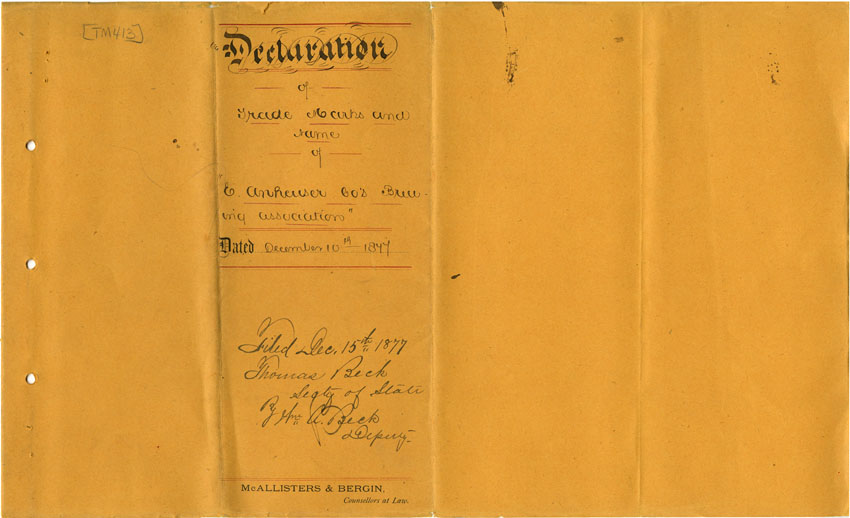 [TM413]
Declaration
of
Trade Marks and
name
of
"E. Anheuser Co's Brew-
ing association"
Dated December 10th 1877
Filed Dec. 15th, 1877
Thomas Beck
Secty of State
By Wm. A. Beck
Deputy.
McALLISTERS & BERGIN,
Counsellors at Law.